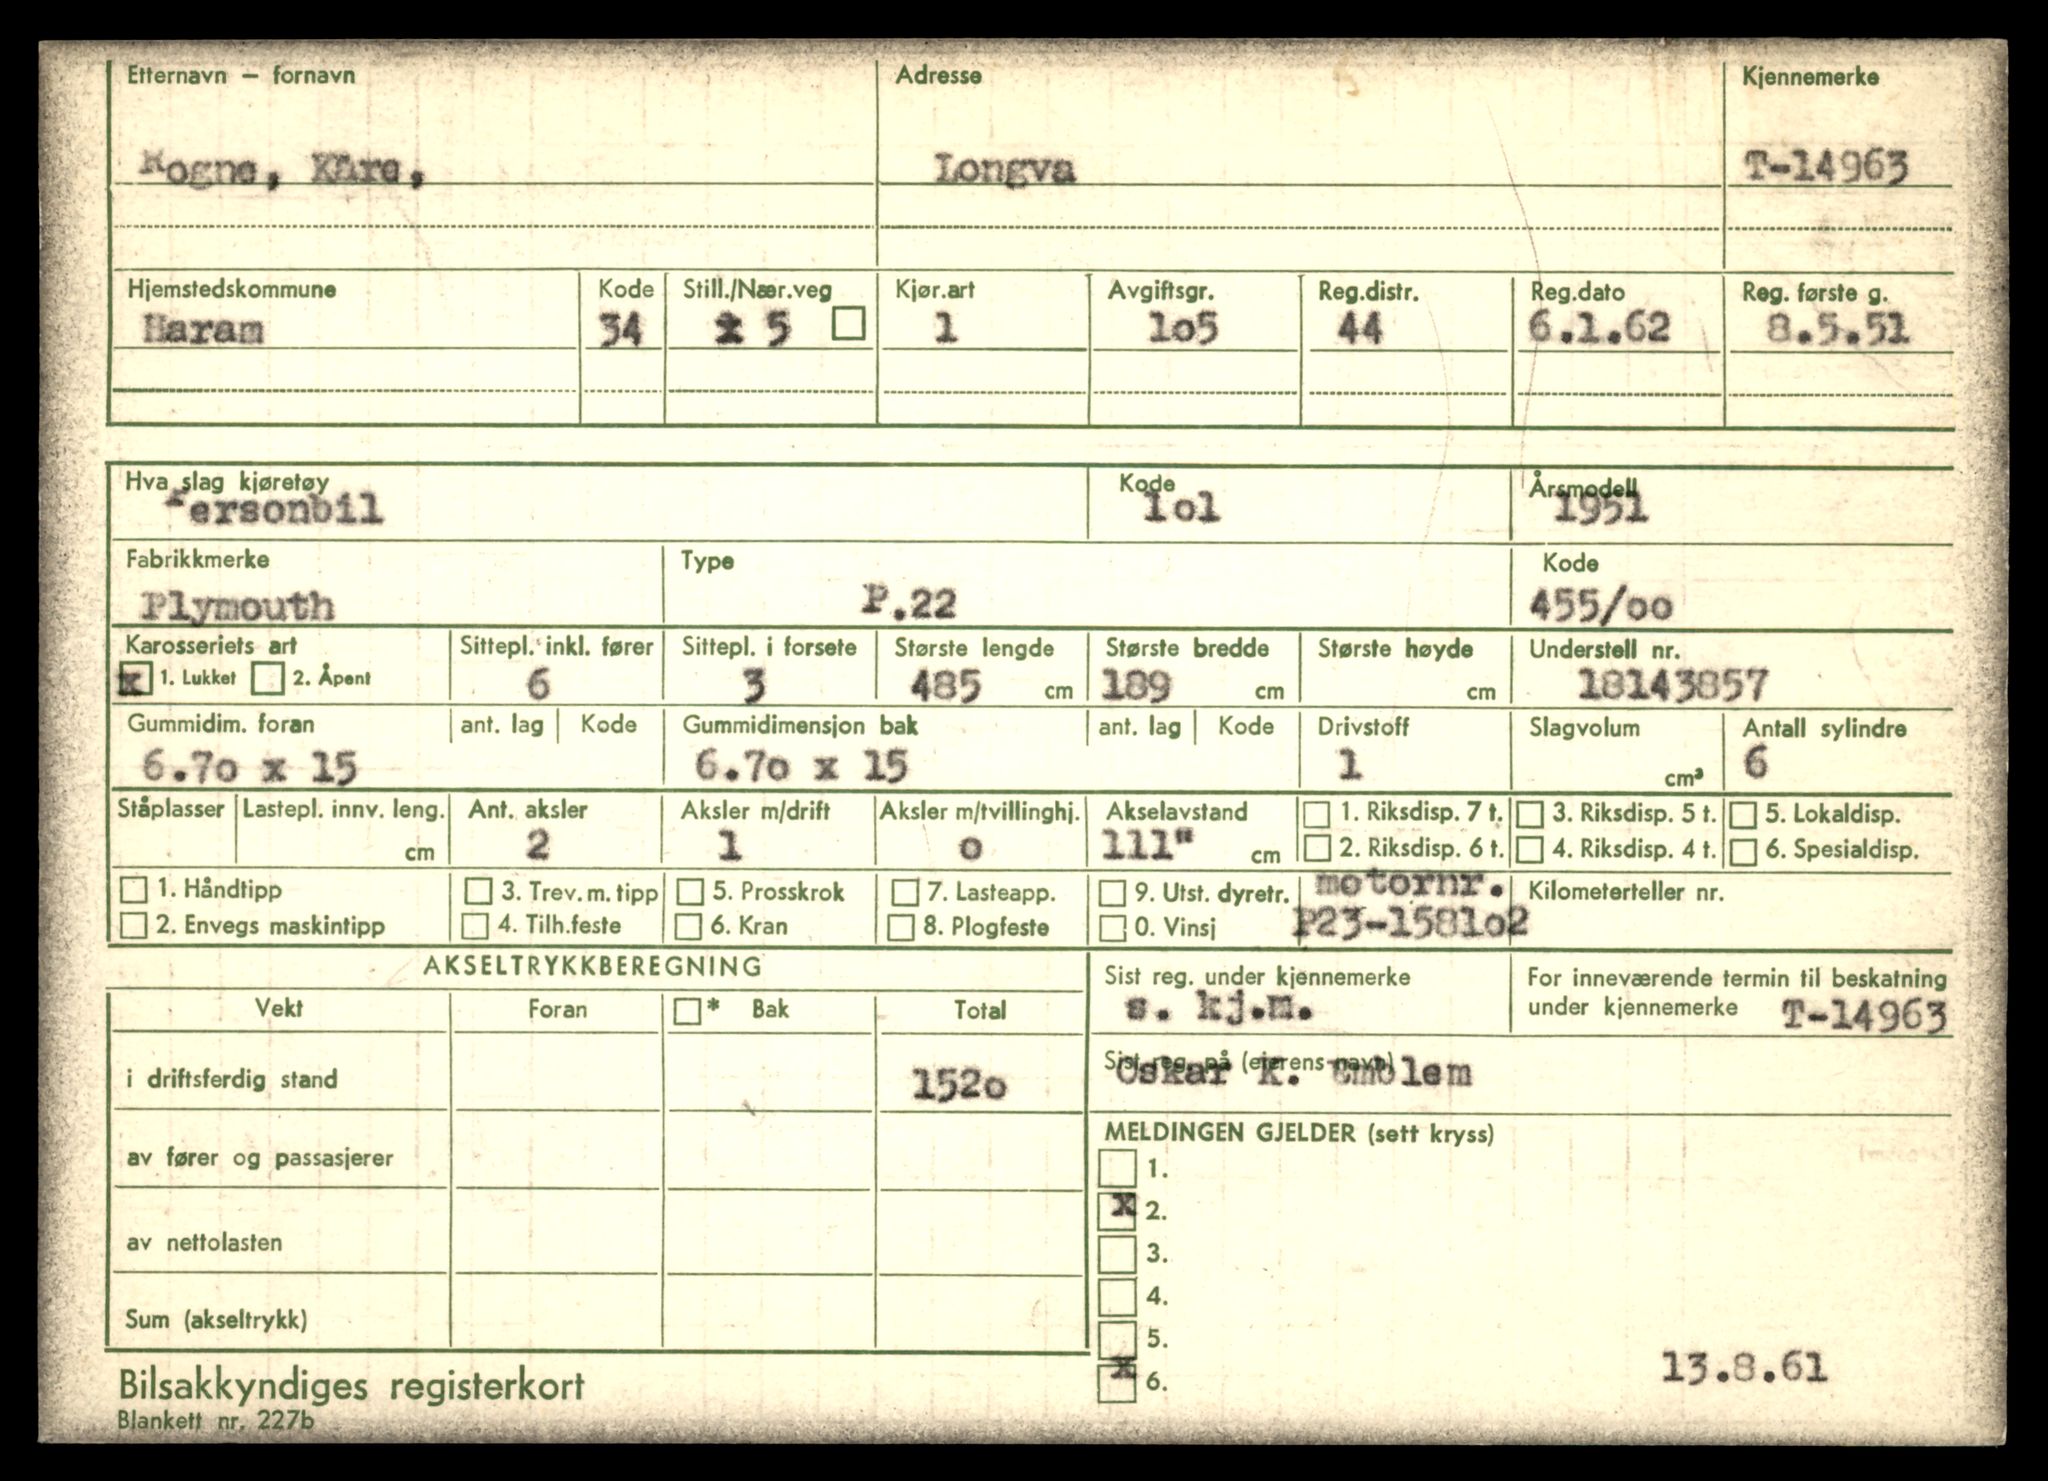 Etternavn – fornavn Adresse Kjennemerke
Rogne, Kåre, Longva T-14963
Hjemstedskommune Kode Still./Nær.veg Kjør.art Avgiftsgr. Reg.distr. Reg.dato Reg. første g.
Haram 34 5 1 1o5 44 6.1.62 8.5.51
Hva slag kjøretøy Kode Årsmodell
Personbil 1o1 1951
Fabrikkmerke Type Kode
Plymouth P.22 455/oo
Karosseriets art Sittepl. inkl. fører Sittepl. i forsete Største lengde Største bredde Største høyde Understell nr.
x 1. Lukket 2. Åpent 6 3 485 cm 189 cm cm 18143857
Gummidim. foran ant. lag Kode Gummidimensjon bak ant. lag Kode Drivstoff Slagvolum Antall sylindre
6.7o x 15 6.7o x 15 1 cm³ 6
Ståplasser Lastepl. innv. leng. Ant. aksler Aksler m/drift Aksler m/tvillinghj. Akselavstand 1. Riksdisp. 7 t. 3. Riksdisp. 5 t. 5. Lokaldisp.
cm 2 1 o 111" cm 2. Riksdisp. 6 t. 4. Riksdisp. 4 t. 6. Spesialdisp.
1. Håndtipp 3. Trev. m. tipp 5. Prosskrok 7. Lasteapp. 9. Utst. dyretr. motornr. Kilometerteller nr.
2. Envegs maskintipp 4. Tilh.feste 6. Kran 8. Plogfeste 0. Vinsj P23-1581o2
AKSELTRYKKBEREGNING Sist reg. under kjennemerke For inneværende termin til beskatning
Vekt Foran * Bak Total s. kj.m. under kjennemerke T-14963
i driftsferdig stand 152o Sist reg. på (eierens navn)
Oskar K. Emblem
av fører og passasjerer MELDINGEN GJELDER (sett kryss)
1.
x 2.
av nettolasten 3.
4.
Sum (akseltrykk) 5.
x 6. 13.8.61
Bilsakkyndiges registerkort
Blankett nr. 227b